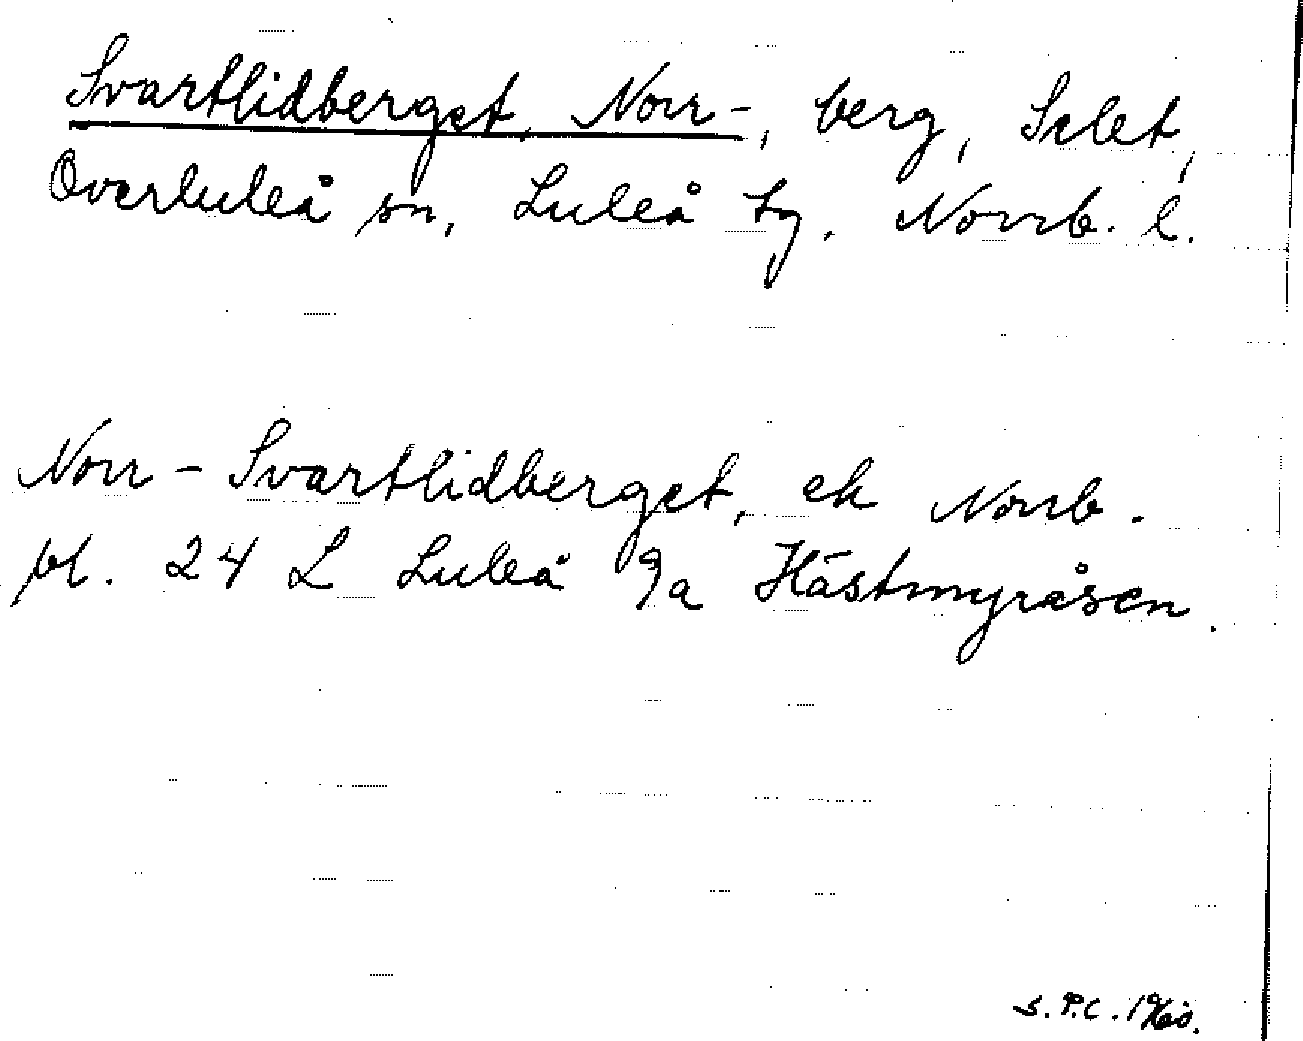 Svartlidberget, Norr-, berg, Selet,
Överluleå sn, Luleå tg. Norrb. l.
Norr-Svartlidberget, ek Norrb.
bl. 24 L Luleå g/a Hästmyråsen.
S.P.C. 1960.